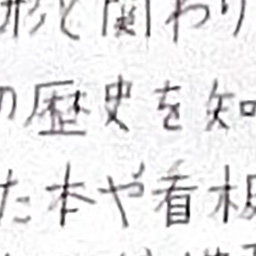 形と関わり
の歴史を知
た本や看板